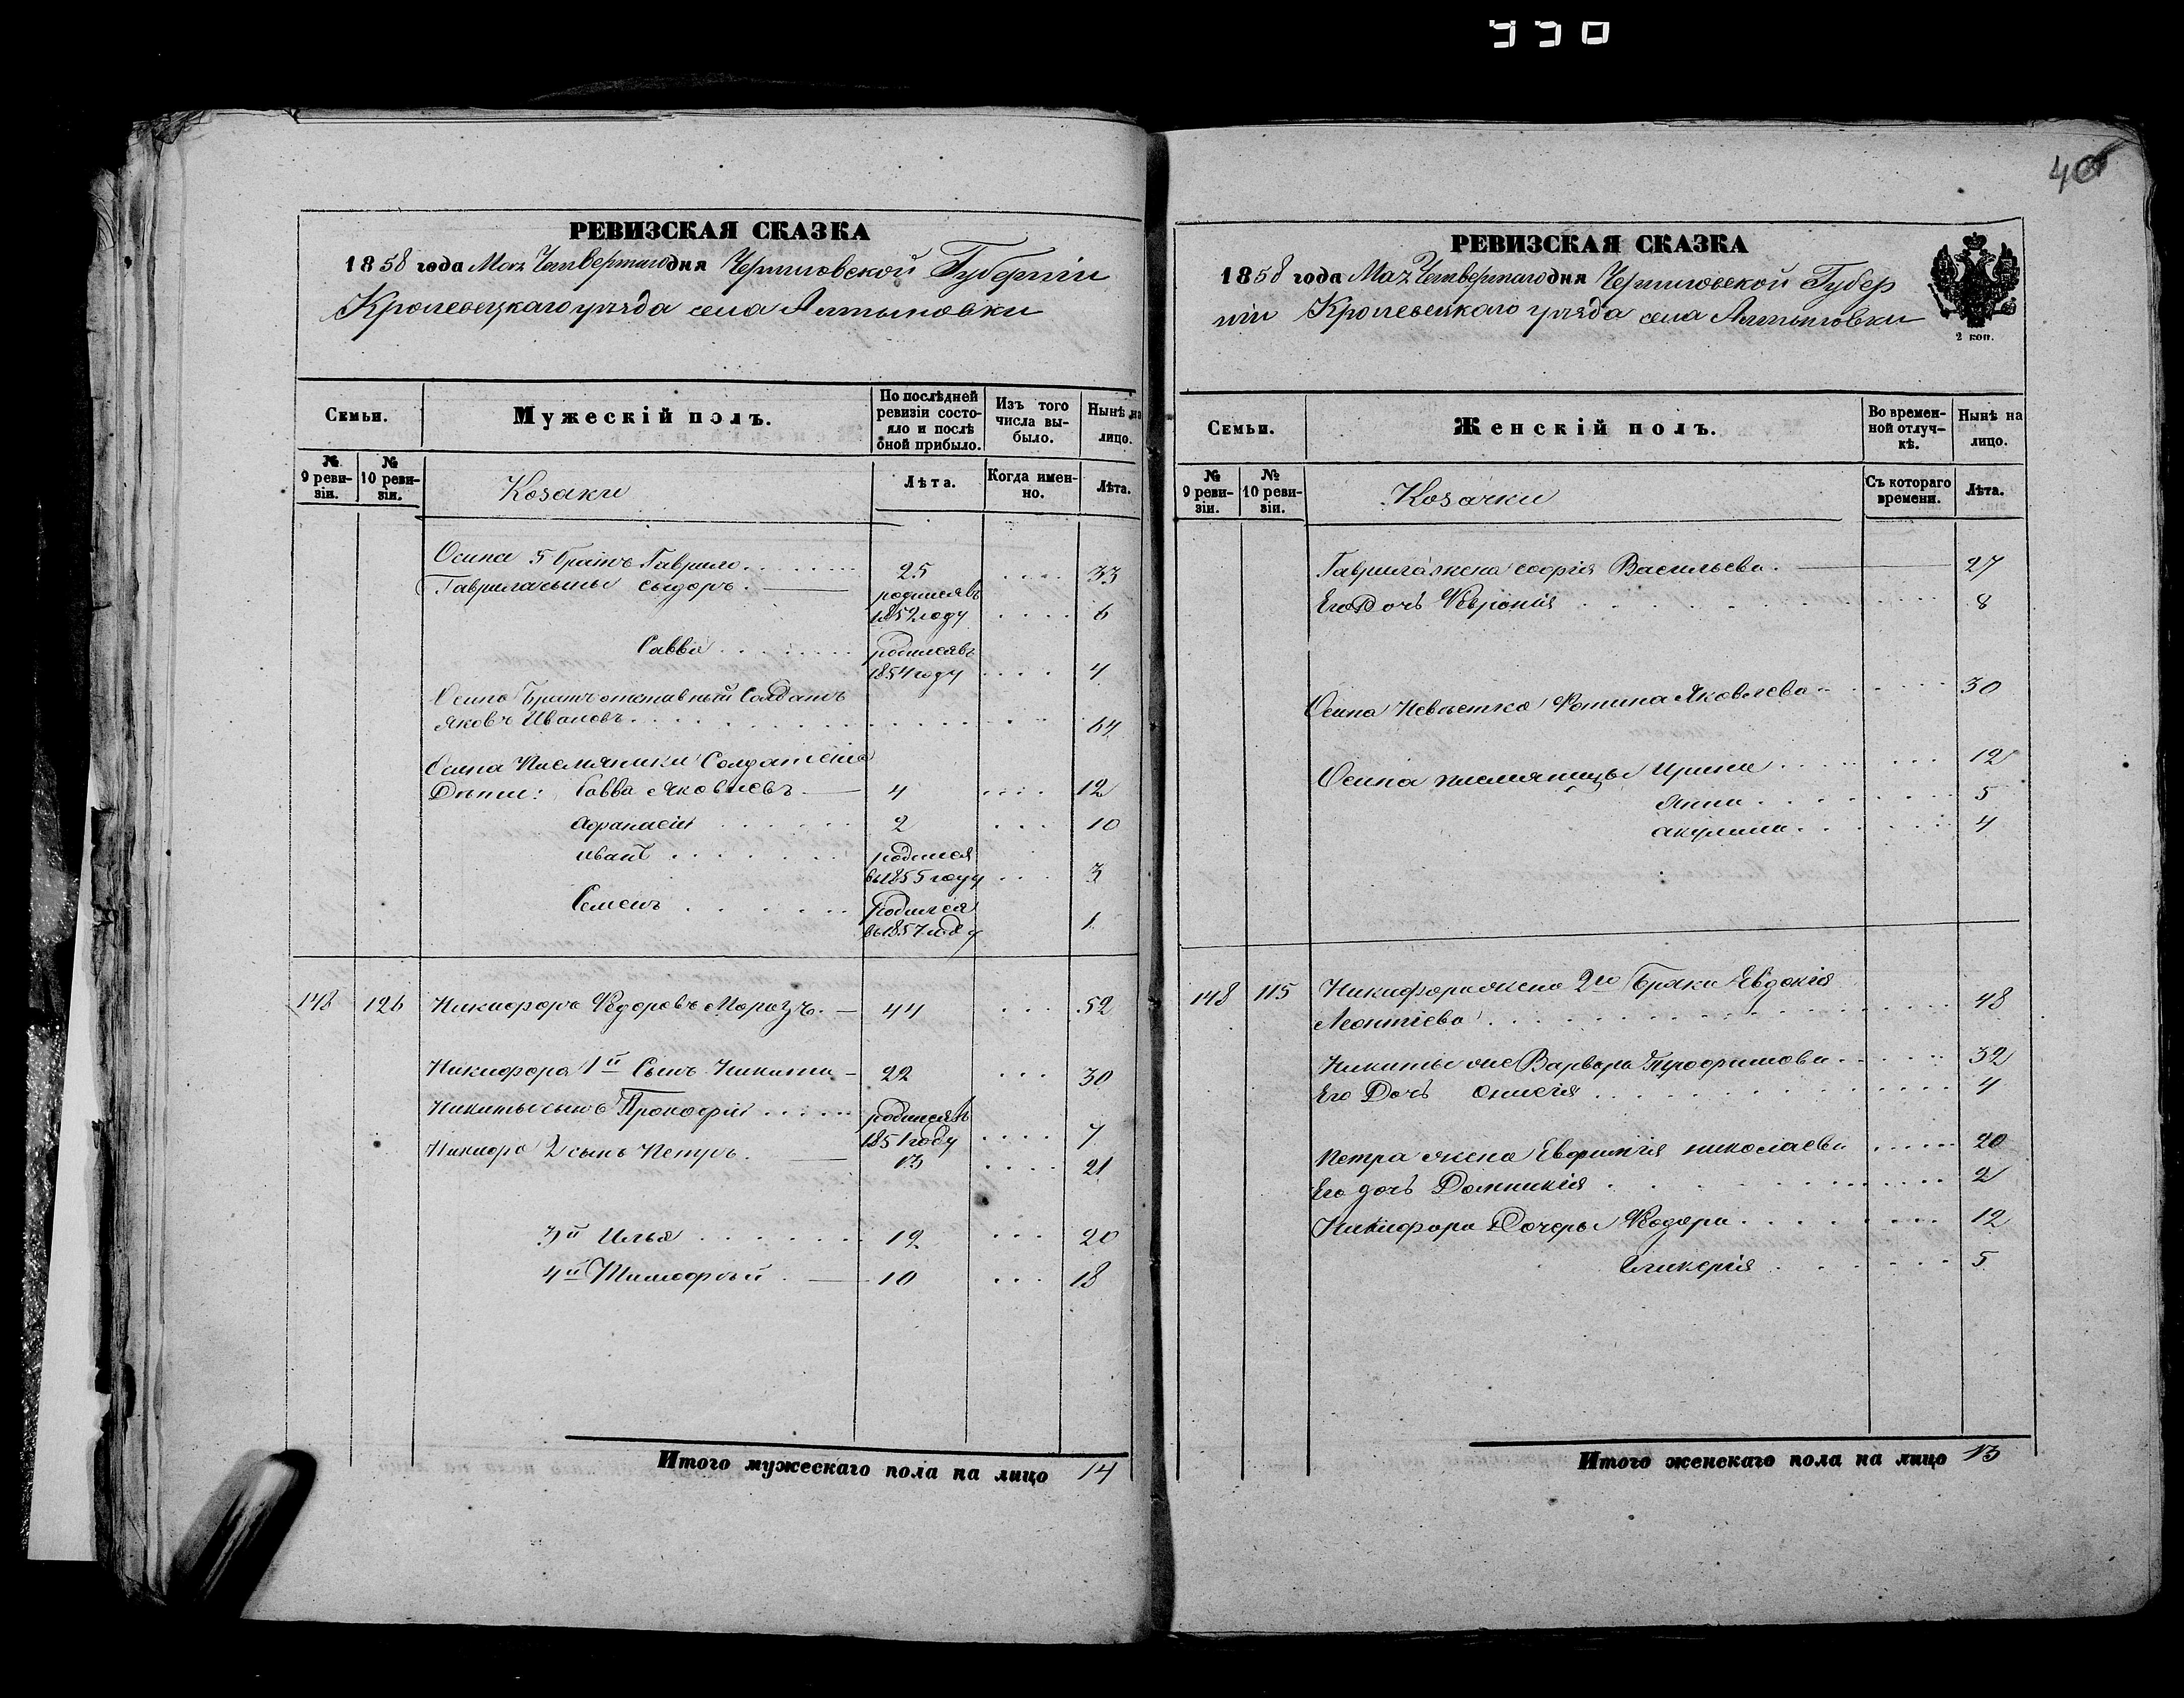 330
40
РЕВИЗСКАЯ СКАЗКА
1858 года Мая Четвертаго дня Черниговской Губерніи
Кролевецкаго уѣзда села Алтыновки
Семьи.
Мужескій полъ.
По послѣдней ревизіи состояло и послѣ оной прибыло.
Изъ того числа выбыло.
Нынѣ на лицо.
№ 9 ревизіи.
№ 10 ревизіи.
Козаки
Лѣта.
Когда именно.
Лѣта.
Осипа 5 братъ Гаврило 25 33
Гаврила сыны Сыдоръ родился въ 1852 году 6
Савва родился въ 1854 году 4
Осипа братъ отставный Солдатъ
Яковъ Ивановъ 64
Осипа племяники Солдатскіе
Дѣти: Савва Яковлевъ 4 12
Афанасій 2 10
Иванъ родился въ 1855 году 3
Семенъ родился въ 1857 году 1
148 126 Никифоръ Федоровъ Морозъ 44 52
Никифора 1й Сынъ Никита 22 30
Никиты сынъ Прокофій родился въ 1851 году 7
2 сынъ Петръ 13 21
3й Илья 12 20
4й Тимофѣй 10 18
Итого мужескаго пола на лицо 14
РЕВИЗСКАЯ СКАЗКА
1858 года Мая Четвертаго дня Черниговской Губер
ніи Кролевецкаго уѣзда села Алтыновки
2 коп.
Семьи.
Женскій полъ.
Во временной отлучкѣ.
Нынѣ на лицо.
№ 9 ревизіи.
№ 10 ревизіи.
Козачки
Съ котораго времени.
Лѣта.
Гаврила жена Софія Васильева 27
Его Дочь Февронія 8
Осипа Невѣстка Фотина Яковлева 30
Осипа племянницы Ирина 12
Анна 5
Акулина 4
148 115 Никифора жена 2го Брака Евдокія
Леонтіева 48
Никиты Варвара Трофимова 32
Его Дочь Онисія 4
Петра жена Евфимія Николаева 20
Его дочь Домникія 2
Никифора Дочеры Федора 12
Гликерія 5
Итого женскаго пола на лицо 13